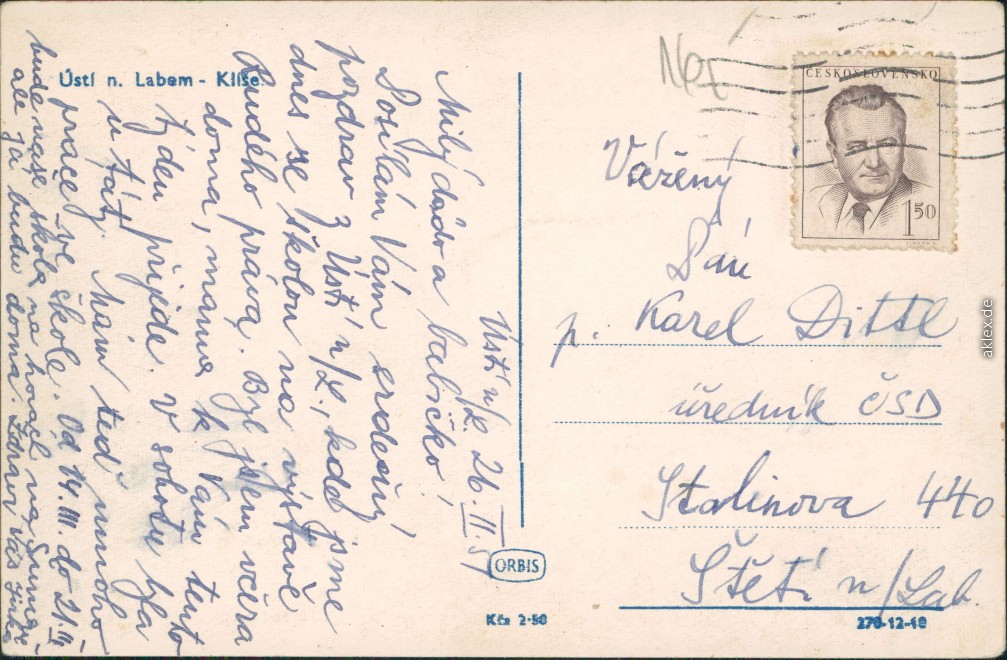 Ústí n. Labem - Klíše.
Ústí n/L. 26.II.51
Milý dědo a babičko!
Posílám Vám srdečný
pozdrav z Ústí n/L., kde jsme
dnes se školou na výstavě
Rudého práva. Byl jsem včera
doma, mama k Vám tento
týden přijede. V sobotu byla
u táty. Mám teď mnoho
práce ve škole. Od 14.III. do 21.III
bude naše škola na horách na
ale já budu doma. Zdraví Vás Jirka
ORBIS
Kčs 2·50
ČESKOSLOVENSKO
1 50
Vážený
Pán
p. Karel Dittl
úředník ČSD
Stalinova 440
Štětí n/Lab.
278-12-10
aklex.de